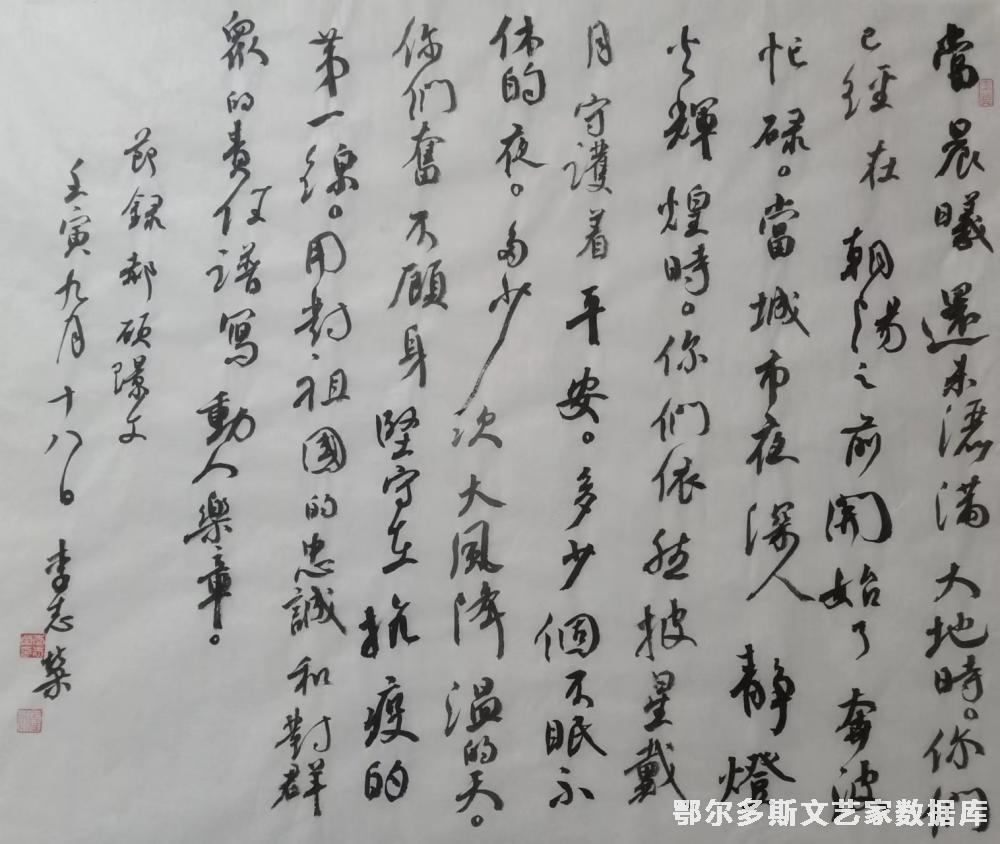 當晨曦還未灑滿大地時。你們
已經在朝陽之前開始了奔波
忙碌。當城市夜深人靜燈
火輝煌時。你們依然披星戴
月守護着平安。多少個不眠不
休的夜。多少次大風降溫的天。
你們奮不顧身堅守在抗疫的
第一線。用對祖國的忠誠和對群
眾的責任譜寫動人樂章。
節錄郝碩璟文
壬寅九月十八日 李志榮
鄂尔多斯文艺家数据库